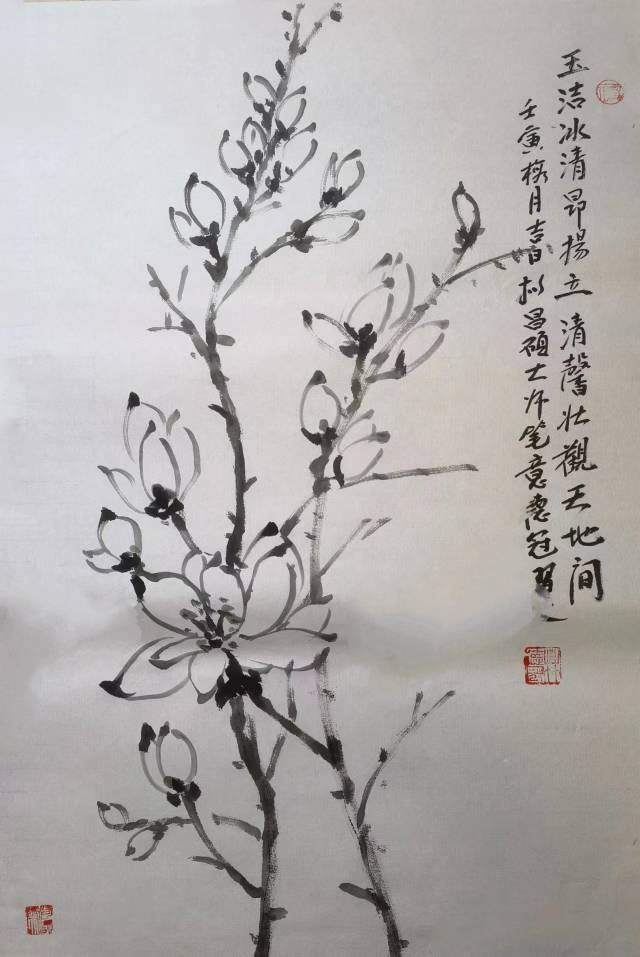 玉洁冰清昂揚立清馨壮觀天地间
壬寅梅月吉日拟昌硕大师笔意惠冠習